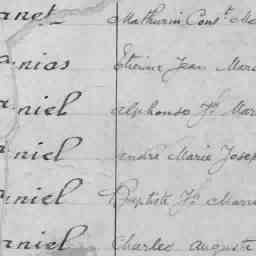 anet Mathurin Const Ma
anias Etienne Jean Mari
aniel Alphonse Fs Mar
aniel André Marie Josep
aniel Baptiste Fs Marie
aniel Charles Auguste